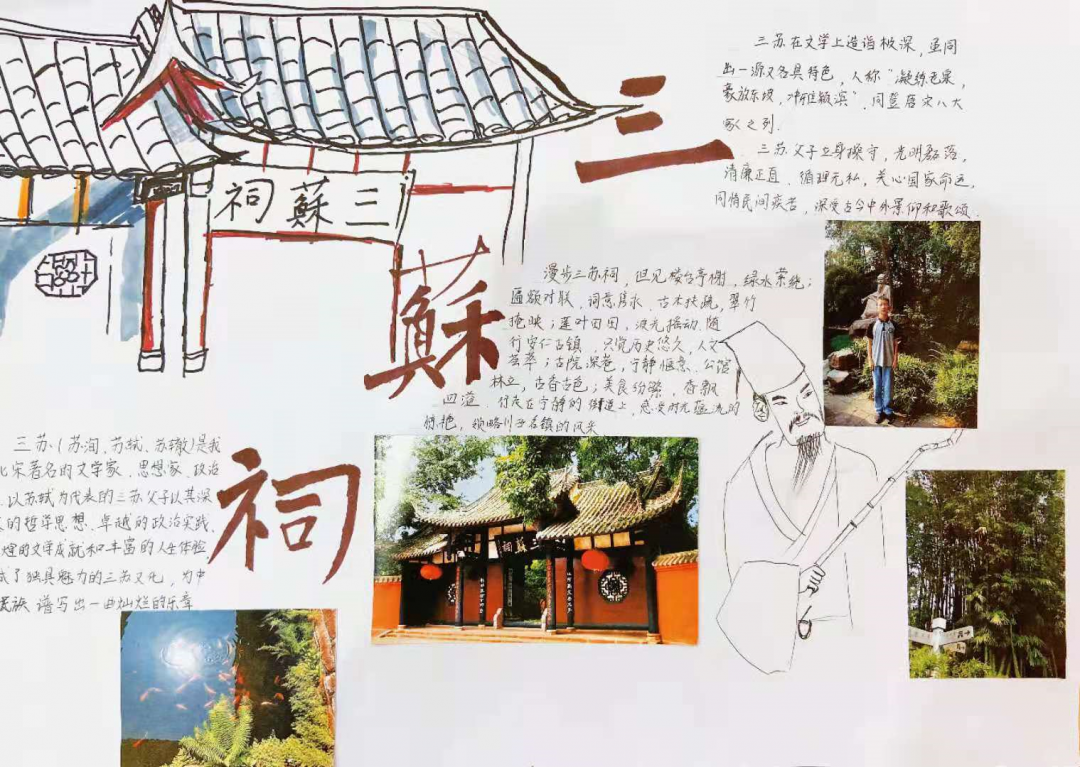 三
蘇
祠
三蘇祠
三苏在文学上造诣极深，虽同
出一源又各具特色，人称“凝练老泉，
豪放东坡，冲雅颍滨”，同登唐宋八大
家之列.
三苏父子立身操守，光明磊落，
清廉正直、循理无私，关心国家命运，
同情民间疾苦，深受古今中外景仰和歌颂.
漫步三苏祠，但见楼台亭榭，绿水萦绕；
匾额对联、词意隽永、古木扶疏，翠竹
掩映；莲叶田田，波光摇动.随
行安仁古镇，只觉历史悠久，人文
荟萃；古院深巷，宁静惬意、公馆
林立，古香古色；美食纷骤，香飘
四溢.行走在宁静的街道上，感受时光蕴流的
的艳，领略川子名镇的风采
三苏（苏洵、苏轼、苏辙）是我
北宋著名的文学家、思想家、政治
以苏轼为代表的三苏父子以其深
的哲学思想、卓越的政治实践、
煌的文学成就和丰富的人生体验
成了独具魅力的三苏文化，为中
民族谱写出一曲灿烂的乐章
蘇祠